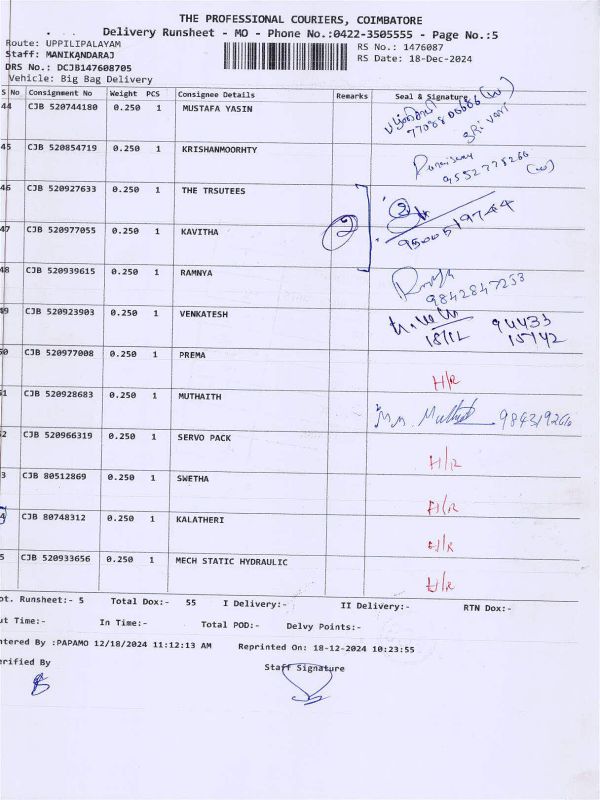 THE PROFESSIONAL COURIERS, COIMBATORE
Delivery Runsheet - MO - Phone No.:0422-3505555 - Page No.:5
Route: UPPILIPALAYAM
RS No.: 1476087
Staff: MANIKANDARAJ
RS Date: 18-Dec-2024
DRS No.: DCJB147608705
Vehicle: Big Bag Delivery
S No Consignment No Weight PCS Consignee Details Remarks Seal & Signature
44 CJB 520744180 0.250 1 MUSTAFA YASIN
45 CJB 520854719 0.250 1 KRISHANMOORHTY
46 CJB 520927633 0.250 1 THE TRSUTEES 2
47 CJB 520977055 0.250 1 KAVITHA 2 9500519744
48 CJB 520939615 0.250 1 RAMNYA 9842847253
49 CJB 520923903 0.250 1 VENKATESH 94433
18/12 15742
50 CJB 520977008 0.250 1 PREMA H/R
51 CJB 520928683 0.250 1 MUTHAITH
52 CJB 520966319 0.250 1 SERVO PACK H/R
3 CJB 80512869 0.250 1 SWETHA H/R
4 CJB 80748312 0.250 1 KALATHERI H/R
5 CJB 520933656 0.250 1 MECH STATIC HYDRAULIC H/R
ot. Runsheet:- 5 Total Dox:- 55 I Delivery:- II Delivery:- RTN Dox:-
ut Time:- In Time:- Total POD:- Delvy Points:-
ntered By :PAPAMO 12/18/2024 11:12:13 AM Reprinted On: 18-12-2024 10:23:55
erified By Staff Signature